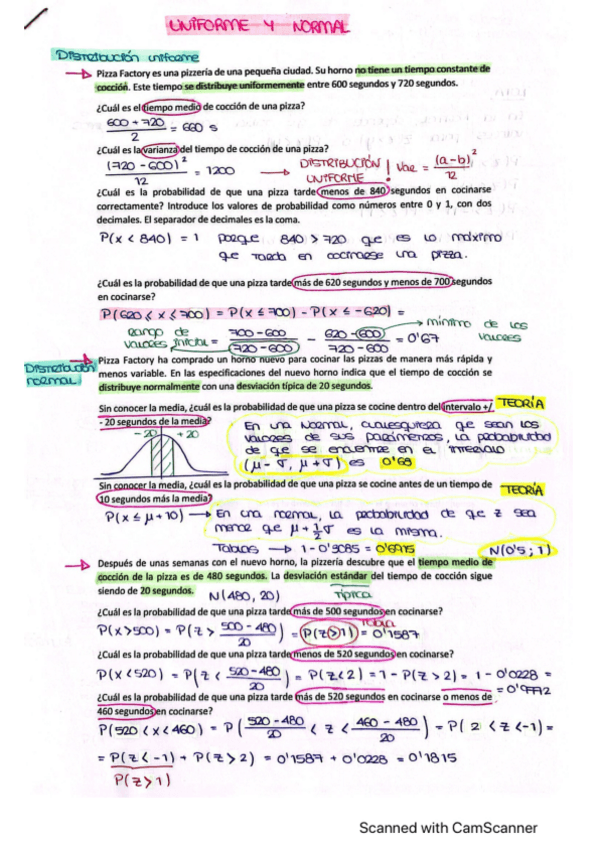 UNIFORME Y NORMAL
Distribución uniforme
Pizza Factory es una pizzería de una pequeña ciudad. Su horno no tiene un tiempo constante de
cocción. Este tiempo se distribuye uniformemente entre 600 segundos y 720 segundos.
¿Cuál es el tiempo medio de cocción de una pizza?
600 + 720 / 2 = 660 s
¿Cuál es la varianza del tiempo de cocción de una pizza?
(720 - 600)² / 12 = 1200 → DISTRIBUCIÓN UNIFORME ! Var = (a-b)² / 12
¿Cuál es la probabilidad de que una pizza tarde menos de 840 segundos en cocinarse
correctamente? Introduce los valores de probabilidad como números entre 0 y 1, con dos
decimales. El separador de decimales es la coma.
P(x < 840) = 1 porque 840 > 720 que es lo máximo
que tarda en cocinarse una pizza.
¿Cuál es la probabilidad de que una pizza tarde más de 620 segundos y menos de 700 segundos
en cocinarse?
P(620 < x ≤ 700) = P(x ≤ 700) - P(x ≤ -620) =
Rango de valores inicial = 700 - 600 / 720 - 600 - 620 - 600 / 720 - 600 = 0'67 → mínimo de los valores
Distribución normal
Pizza Factory ha comprado un horno nuevo para cocinar las pizzas de manera más rápida y
menos variable. En las especificaciones del nuevo horno indica que el tiempo de cocción se
distribuye normalmente con una desviación típica de 20 segundos.
Sin conocer la media, ¿cuál es la probabilidad de que una pizza se cocine dentro del intervalo +/ TEORÍA
- 20 segundos de la media?
- 20 + 20
En una Normal, cualesquiera que sean los
valores de sus parámetros, la probabilidad
de que se encuentre en el intervalo
(μ - σ, μ + σ) es 0'68
Sin conocer la media, ¿cuál es la probabilidad de que una pizza se cocine antes de un tiempo de TEORÍA
10 segundos más la media?
P(x ≤ μ + 10) → En una normal, la probabilidad de que z sea
menor que μ + ½σ es la misma.
Tablas → 1 - 0'3085 = 0'6915 N(0'5; 1)
Después de unas semanas con el nuevo horno, la pizzería descubre que el tiempo medio de
cocción de la pizza es de 480 segundos. La desviación estándar del tiempo de cocción sigue
siendo de 20 segundos. N(480, 20) típica
¿Cuál es la probabilidad de que una pizza tarde más de 500 segundos en cocinarse?
P(x > 500) = P(z > 500 - 480 / 20) = P(z > 1) = 0'1587 Tabla
¿Cuál es la probabilidad de que una pizza tarde menos de 520 segundos en cocinarse?
P(x < 520) = P(z < 520 - 480 / 20) = P(z < 2) = 1 - P(z > 2) = 1 - 0'0228 =
= 0'9772
¿Cuál es la probabilidad de que una pizza tarde más de 520 segundos en cocinarse o menos de
460 segundos en cocinarse?
P(520 < x < 460) = P(520 - 480 / 20 < z < 460 - 480 / 20) = P(2 < z < -1) =
= P(z < -1) + P(z > 2) = 0'1587 + 0'0228 = 0'1815
P(z > 1)
Scanned with CamScanner